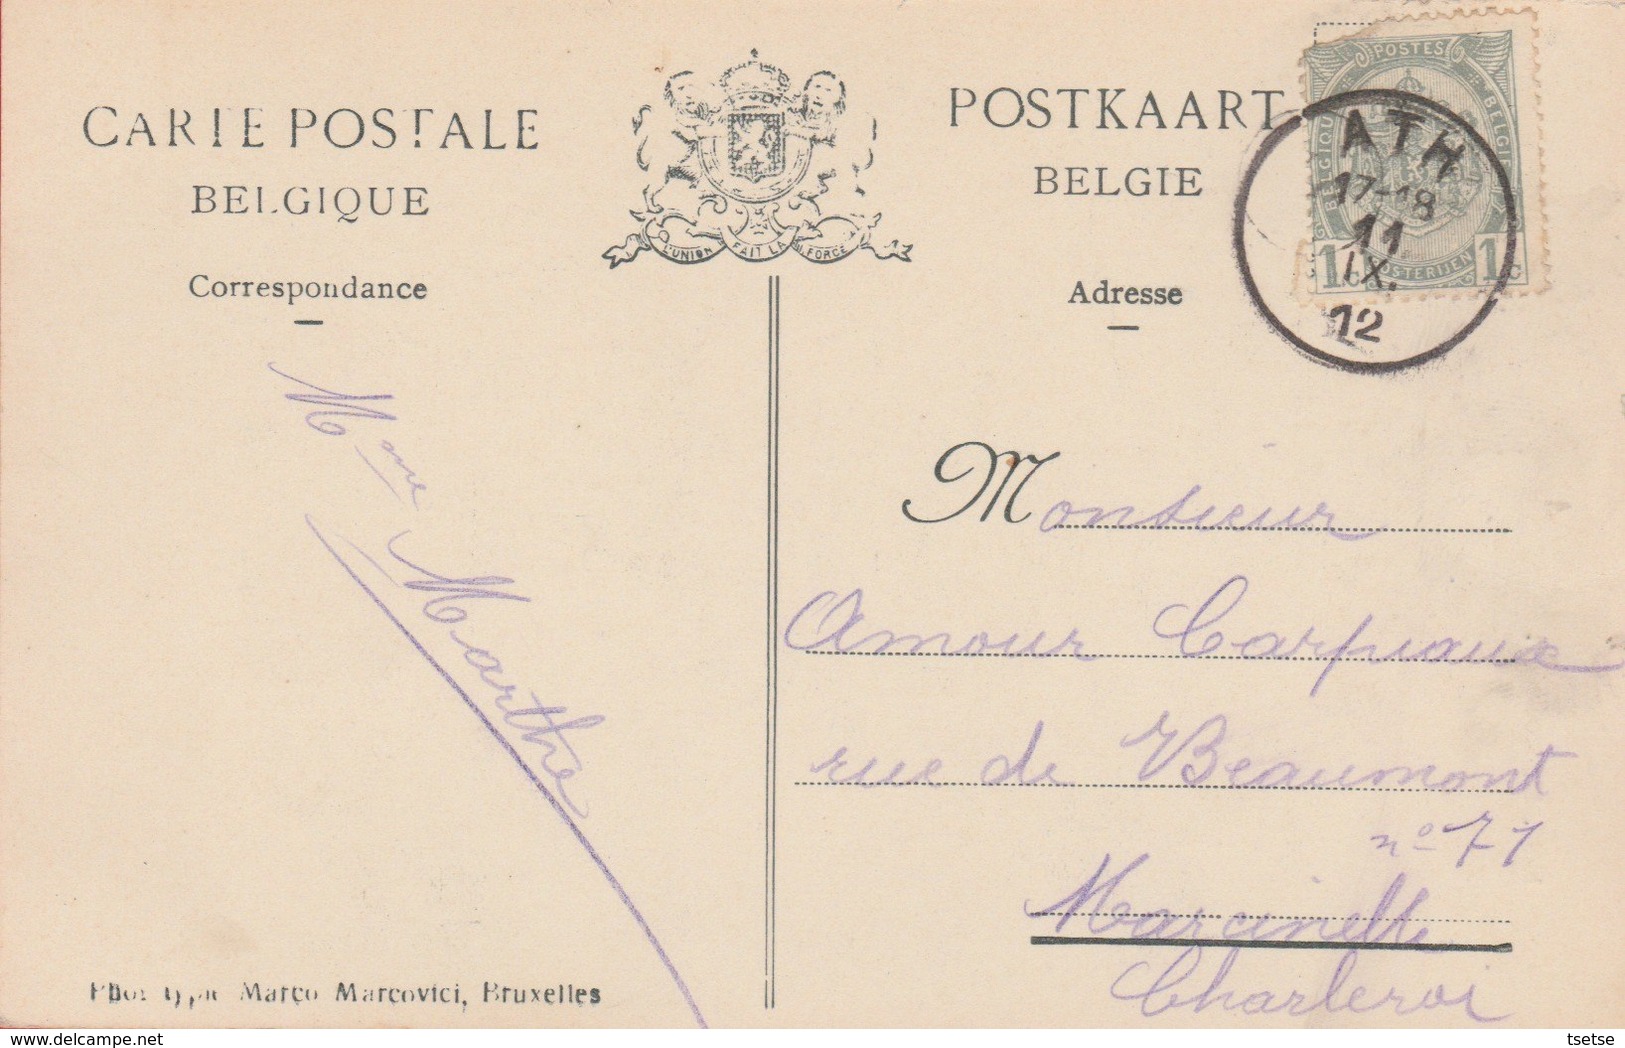 CARTE POSTALE
BELGIQUE
Correspondance
L'UNION FAIT LA FORCE
POSTKAART
BELGIE
Adresse
POSTES
BELGIQUE
BELGIE
POSTERIJEN
1c 1c
ATH
17-18
11
IX.
12
Mme Marthe
Monsieur
Amour Carpiaux
rue de Beaumont
no 71
Marcinelle
Charleroi
Phototypie Marco Marcovici, Bruxelles
tsetse